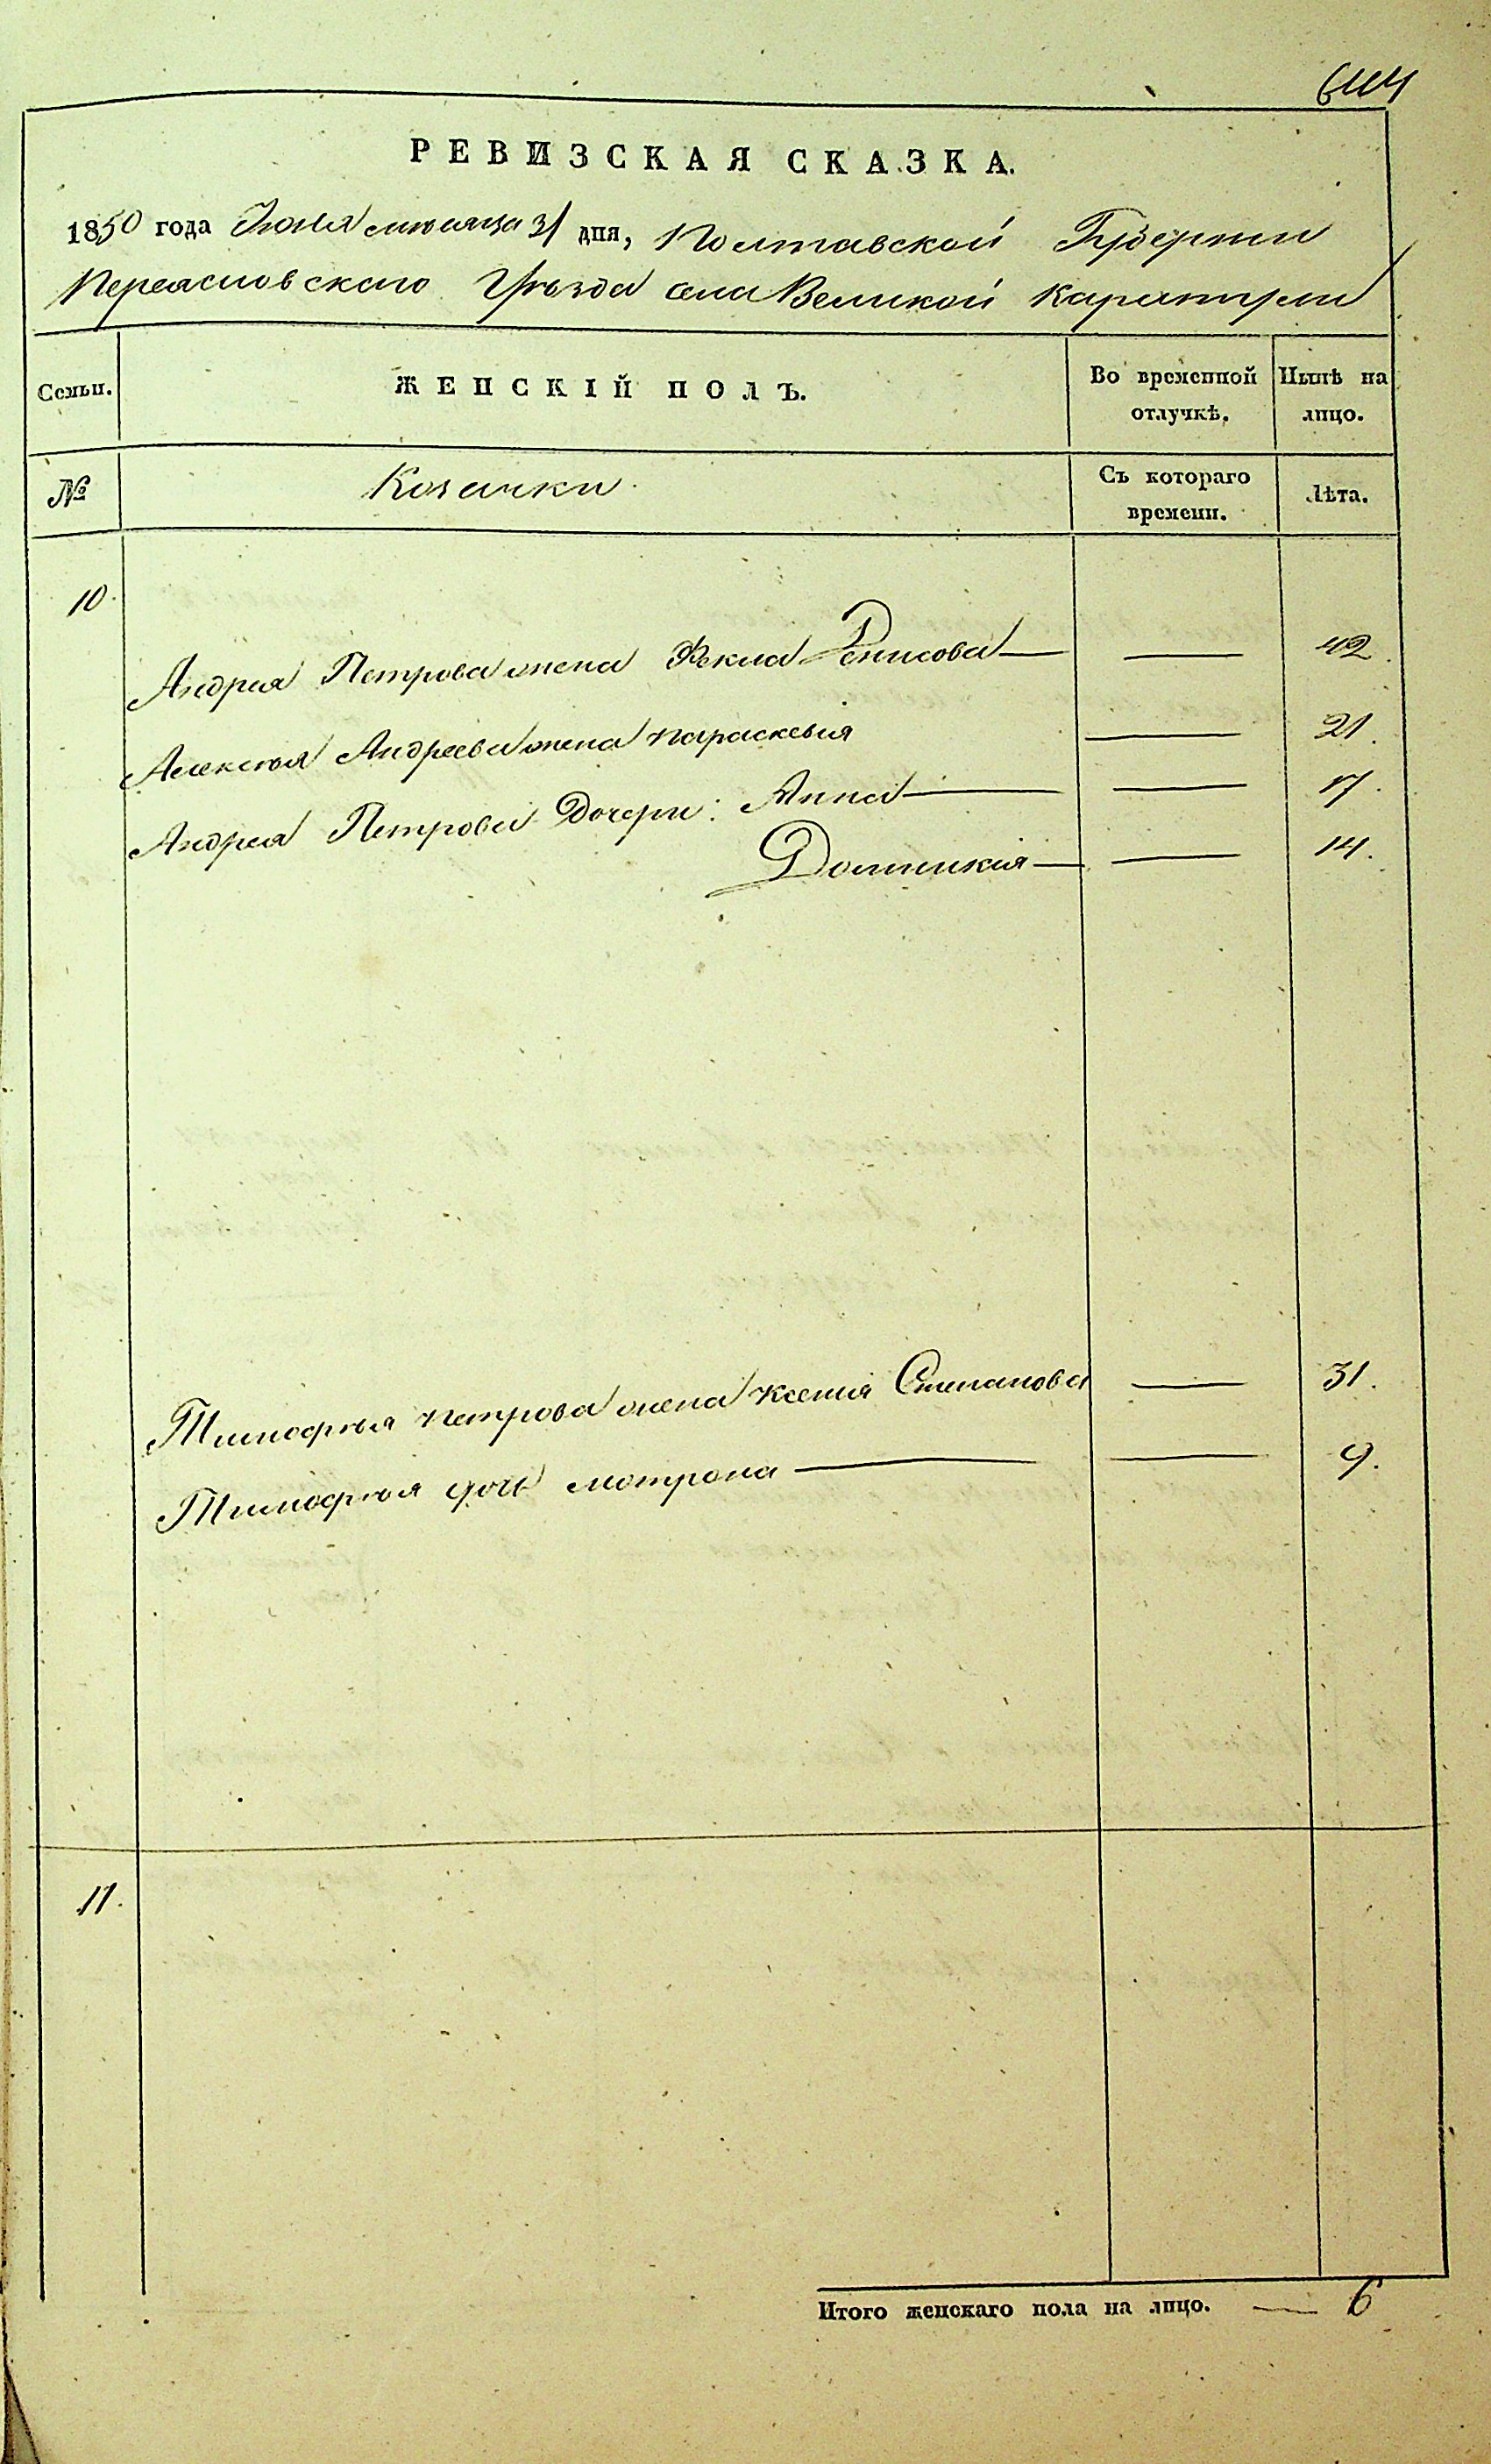 644
РЕВИЗСКАЯ СКАЗКА.
1850 года Июня месяца 31 дня, Полтавской Губернии
Переясловского Уѣзда села Великой Каратули
Семьи.
ЖЕНСКІЙ ПОЛЪ.
Во временной отлучкѣ.
Нынѣ на лицо.
№
Козачки.
Съ котораго времени.
Лѣта.
10.
Андрея Петрова жена Фекла Денисова — — 42.
Алексѣя Андреева жена Параскевія — 21.
Андрея Петрова Дочери: Анна — — 17.
Домникія — — 14.
Тимофѣя Петрова жена Ксенія Степанова — 31.
Тимофѣя дочь Мотрона — — 9.
11.
Итого женскаго пола на лицо. — 6